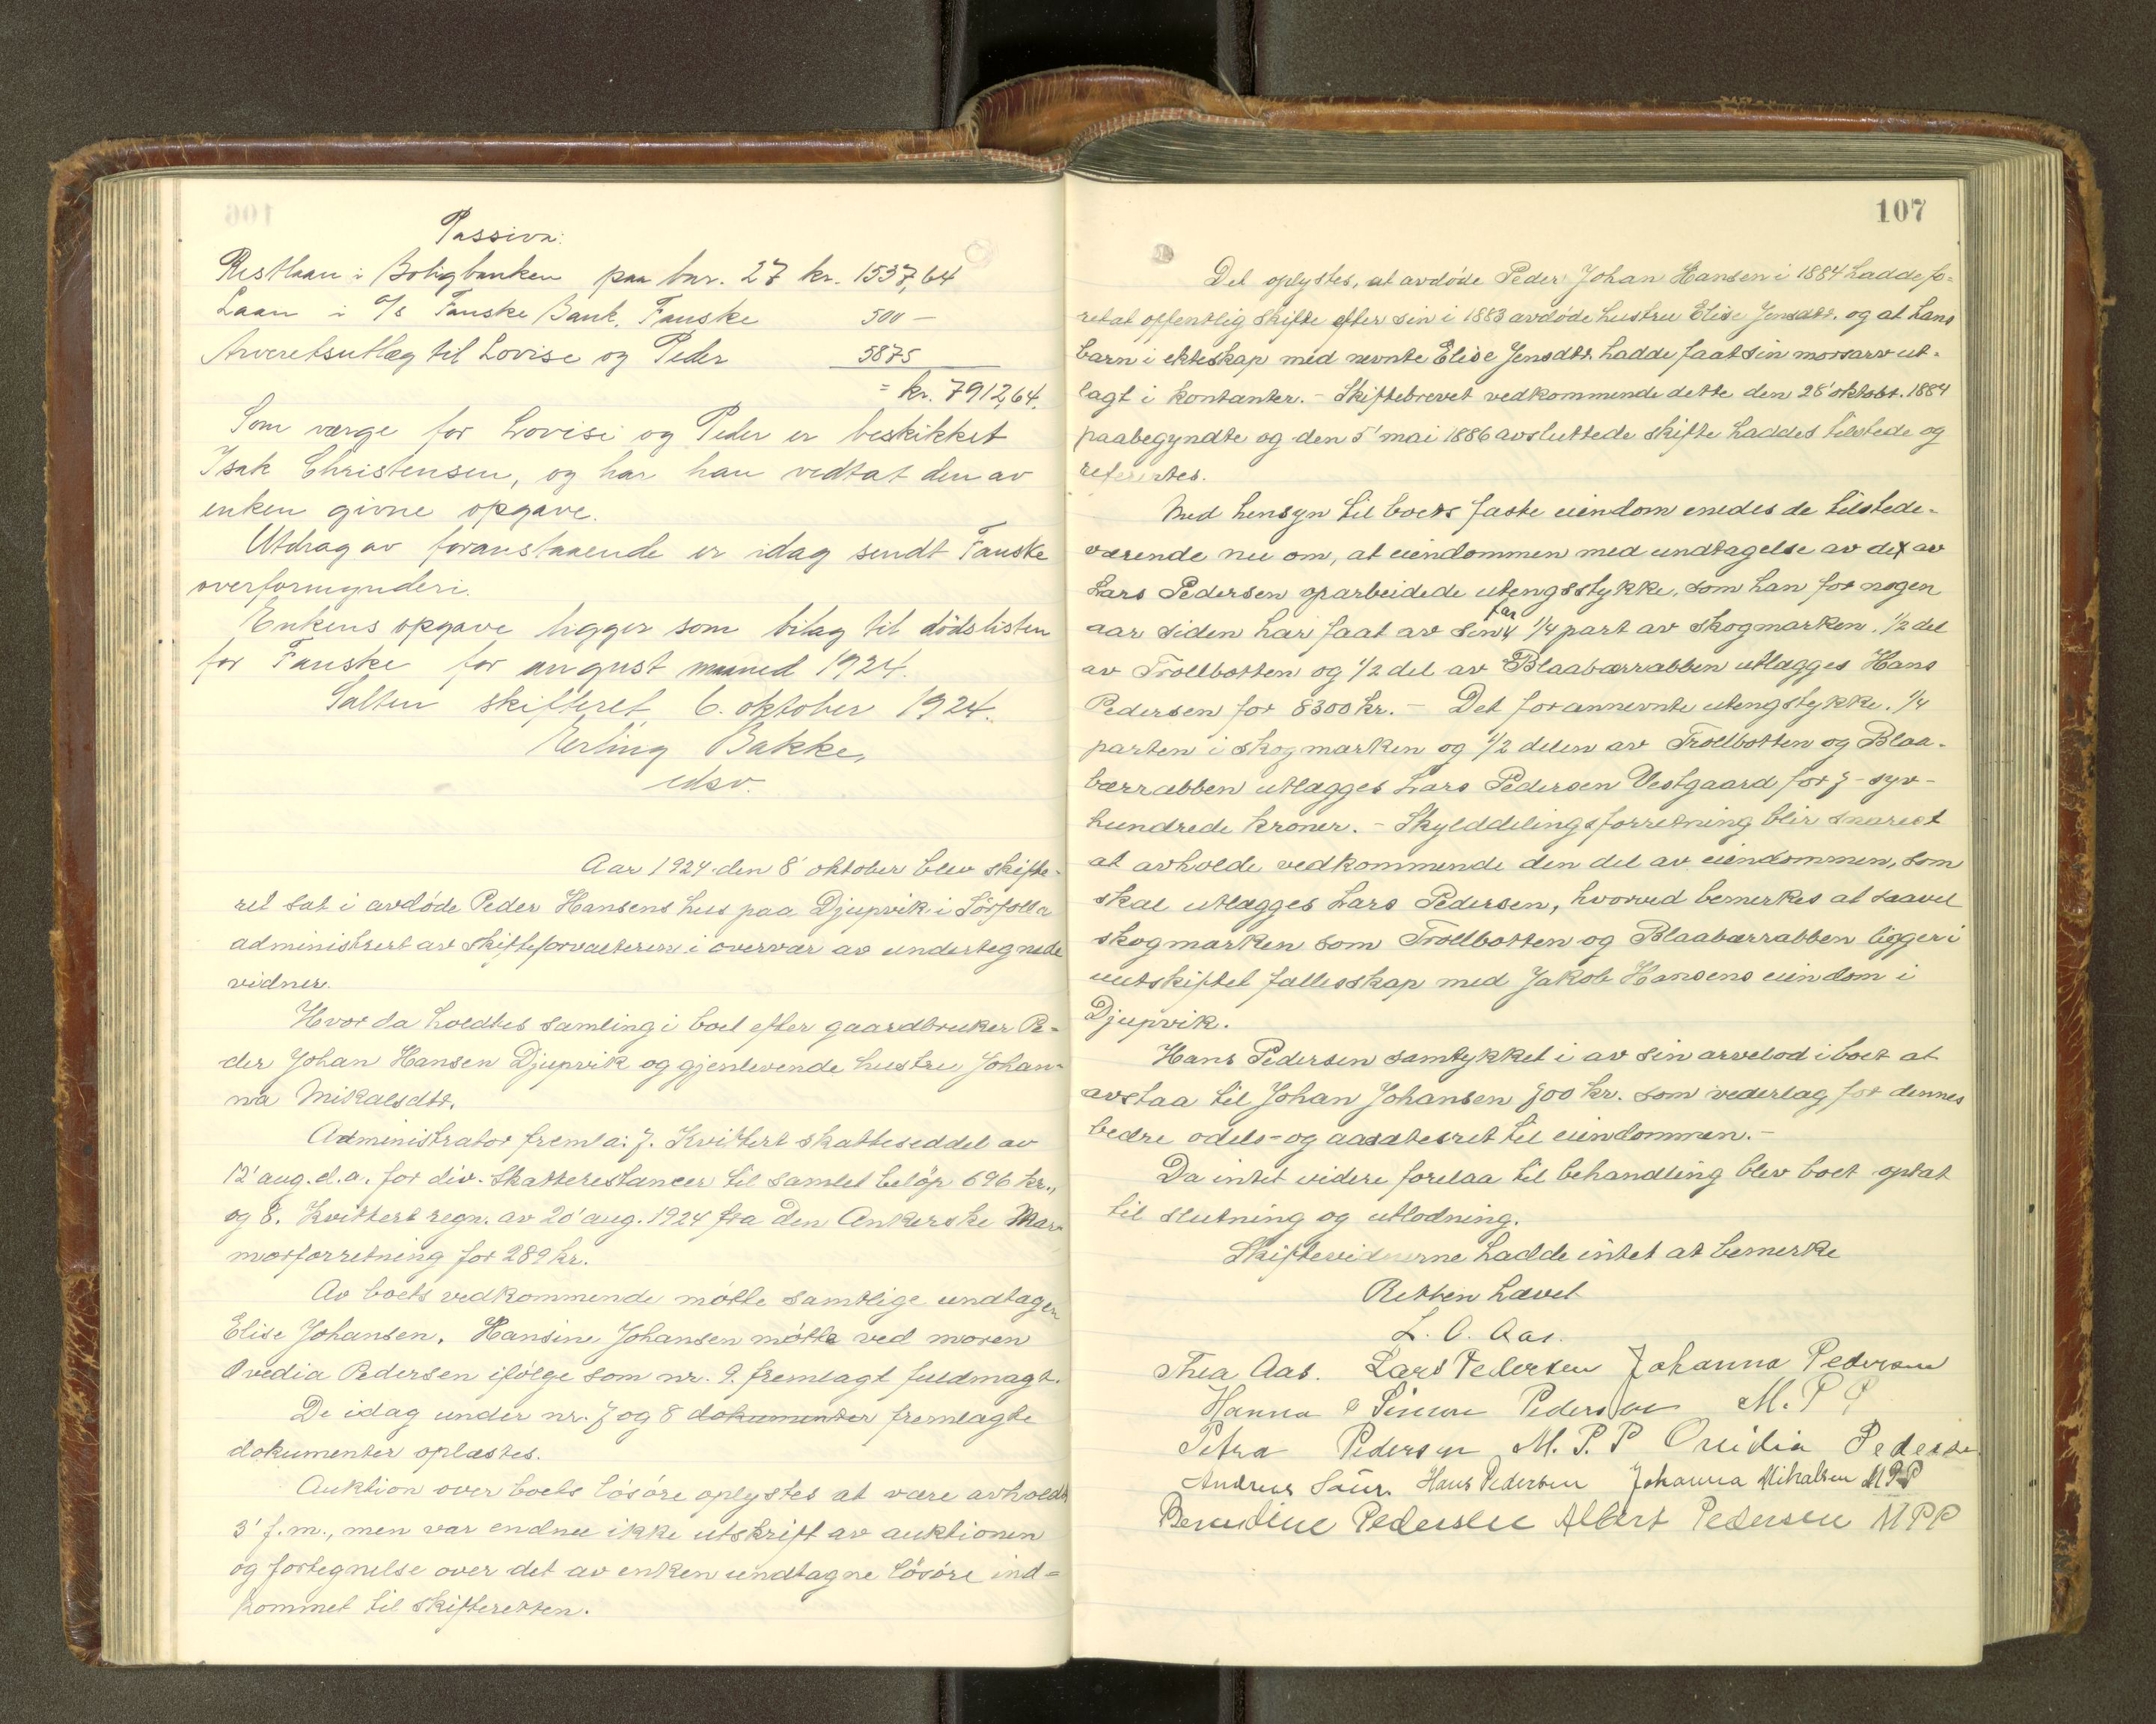 Passiva:
Restlaan i Boligbanken paa bnr. 27 kr. 1537,64
Laan i A/S Fauske Bank, Fauske 500 –
Arveretsutlæg til Lovise og Peder 5875
= kr. 7912,64.
Som værge for Lovise og Peder er beskikket
Isak Christensen, og har han vedtat den av
enken givne opgave.
Utdrag av foranstaaende er idag sendt Fauske
overformynderi.
Enkens opgave ligger som bilag til dödslisten
for Fauske for august maaned 1924.
Salten skifteret, 6. oktober 1924.
Erling Bakke,
edsv.
Aar 1924 den 8' oktober blev skifte-
ret sat i avdøde Peder Hansens hus paa Djupvik i Sörfolla
administrert av skifteforvalteren i overvær av undertegnede
vidner.
Hvor da holdtes samling i boet efter gaardbruker Pe-
der Johan Hansen Djupvik og gjenlevende hustru Johan-
na Mikalsdtr.
Administrator fremla: 7. Kvittert skatteseddel av
12' aug. d.a. for div. skatterestancer til samlet beløp 696 kr.,
og 8. Kvittert regn. av 20' aug. 1924 fra Den Ankerske Mar-
morforretning for 289 kr.
Av boets vedkommende møtte samtlige undtagen
Elise Johansen. Hansine Johansen møtte ved moren
Ovedia Pedersen ifølge som nr. 9. fremlagt fuldmagt.
De idag under nr. 7 og 8 dokumenter fremlagte
dokumenter oplæstes.
Auktion over boets løsøre oplystes at være avholdt
3' f.m., men var endnu ikke utskrift av auktionen
og fortegnelse over det av enken undtagne løsøre ind-
kommet til skifteretten.
107
Det oplystes, at avdøde Peder Johan Hansen i 1884 hadde fo-
retat offentlig skifte efter sin i 1883 avdøde hustru Elise Jensdtr. og at hans
barn i ekteskap med nevnte Elise Jensdtr. hadde faat sin morsarv ut-
lagt i kontanter. – Skiftebrevet vedkommende dette den 28' oktobr. 1884
paabegyndte og den 5' mai 1886 avsluttede skifte haddes tilstede og
refererertes.
Med hensyn til boets faste eiendom enedes de tilstede-
værende nu om, at eiendommen med undtagelse av det av
Lars Pedersen oparbeidede utengsstykke, som han for nogen
aar siden har faat av sin far 1/4 part av skogmarken, 1/2 del
av Trollbotten og 1/2 del av Blaabærrabben utlægges Hans
Pedersen for 8300 kr. – Det forannevnte utengstykke, 1/4
parten i skogmarken og 1/2 delen av Trollbotten og Blaa-
bærrabben utlægges Lars Pedersen Vestgaard for 7 – syv –
hundrede kroner. – Skylddelingsforretning blir snarest
at avholde vedkommende den del av eiendommen, som
skal utlægges Lars Pedersen, hvorved bemerkes at saavel
skogmarken som Trollbotten og Blaabærrabben ligger i
uutskiftet fællesskap med Jakob Hansens eiendom i
Djupvik.
Hans Pedersen samtykket i av sin arvelod i boet at
avstaa til Johan Johansen 700 kr. som vederlag for dennes
bedre odels- og aasætesret til eiendommen. –
Da intet videre forelaa til behandling blev boet optat
til slutning og utlodning.
Skiftevidnerne hadde intet at bemerke
Retten hævet
L. O. Aas.
Thea Aas. Lars Pedersen Johanna Pedersen
Hanna Pedersen M. P P
Petra Pedersen M. P. P Ovidia Pedersen
Andreas Hans Pedersen Johanna Mikalsen M P P
Berntine Pedersen Albert Pedersen M P P